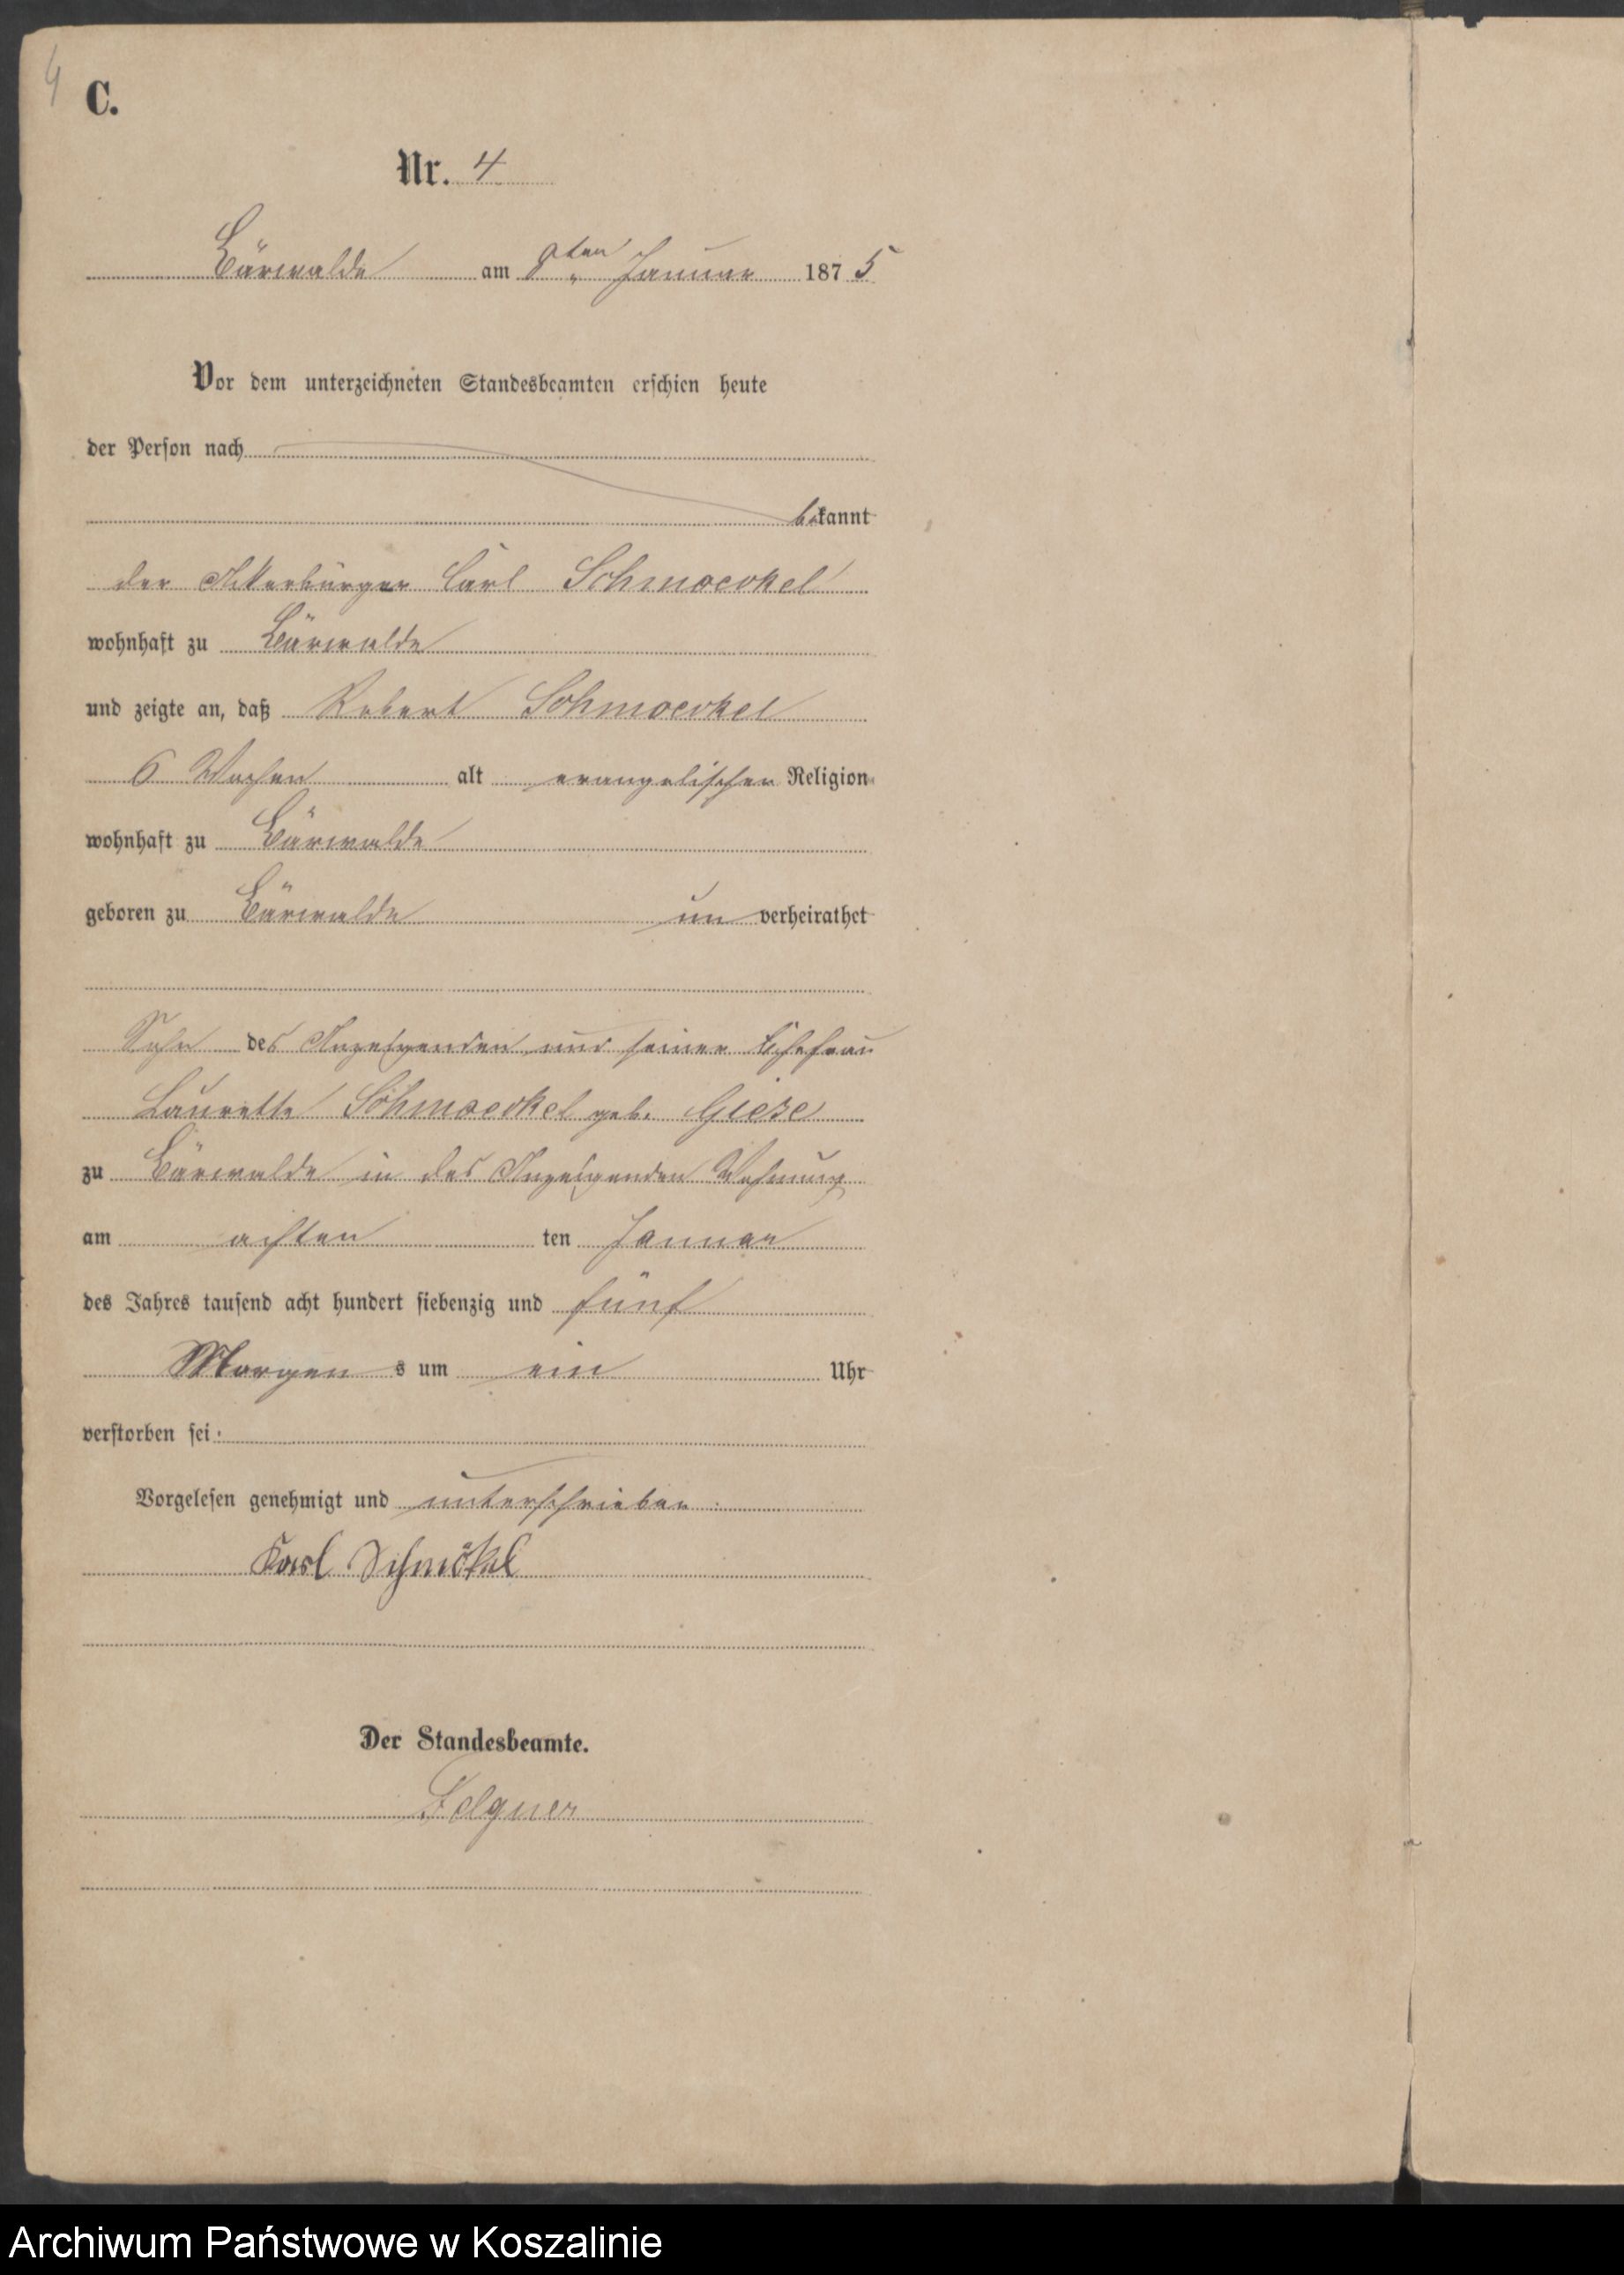 4
C.
Nr. 4
Bärwalde am 8ten Januar 1875
Vor dem unterzeichneten Standesbeamten erschien heute
der Person nach
bekannt
der Ackerbürger Carl Schmoeckel
wohnhaft zu Bärwalde
und zeigte an, daß Robert Schmoeckel
6 Wochen alt evangelischer Religion
wohnhaft zu Bärwalde
geboren zu Bärwalde un verheirathet
Sohn des Anzeigenden und seiner Ehefrau
Laurette Schmoeckel geb. Giese
zu Bärwalde in des Anzeigenden Wohnung
am achten ten Januar
des Jahres tausend acht hundert siebenzig und fünf
Morgen s um ein Uhr
verstorben sei.
Vorgelesen genehmigt und unterschrieben.
Karl Schmökel
Der Standesbeamte.
Felgner
Archiwum Państwowe w Koszalinie